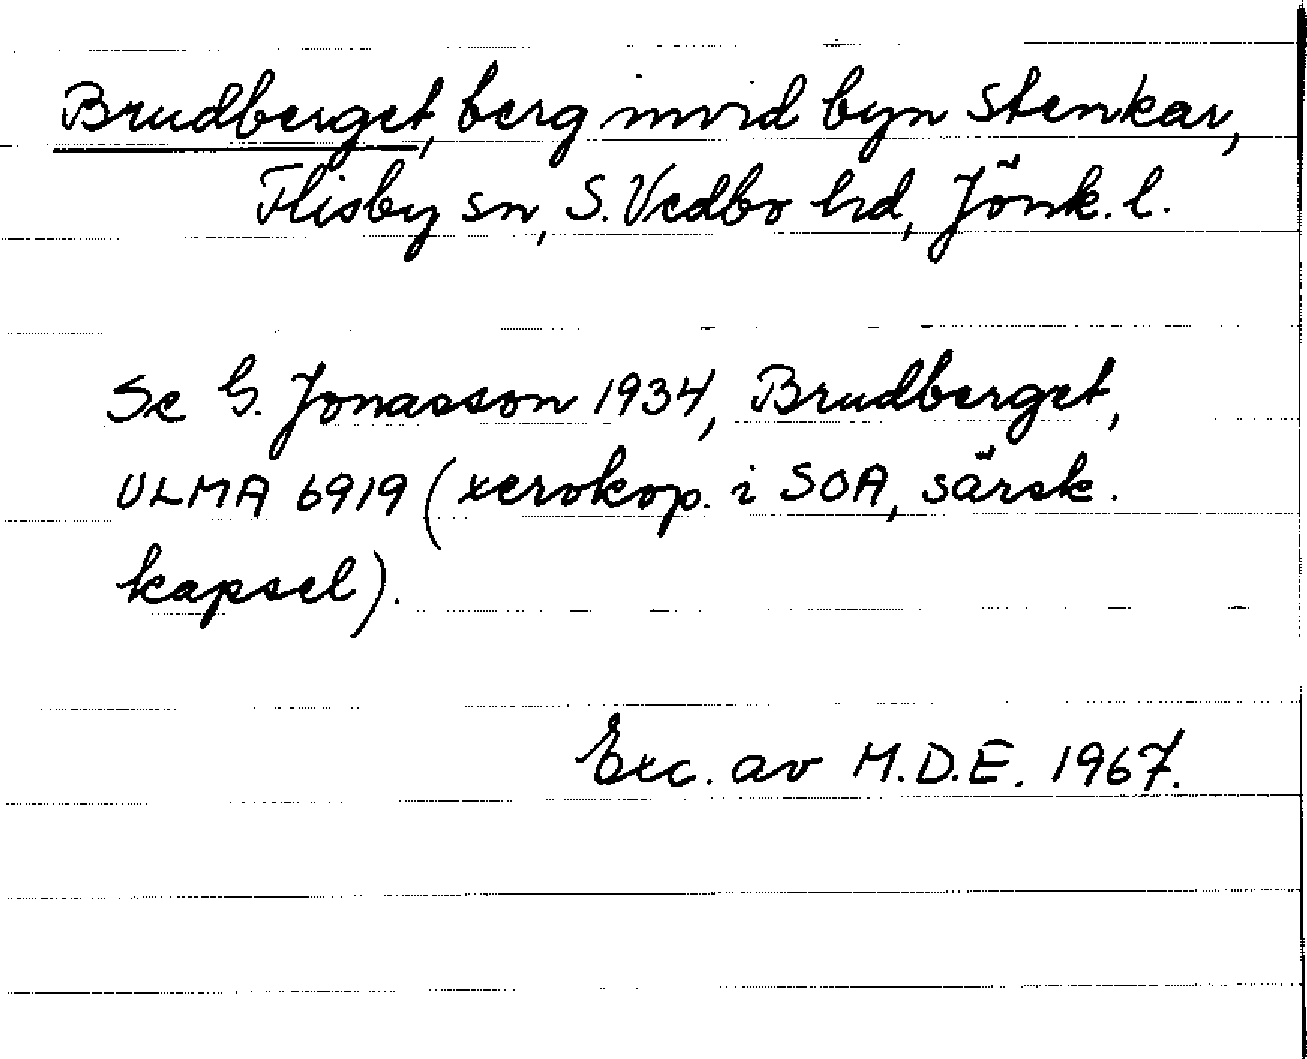 Brudberget, berg invid byn Stenkar,
Flisby sn, S. Vedbo hd, Jönk. l.
Se G. Jonasson 1934, Brudberget,
ULMA 6919 (xerokop. i SOA, särsk.
kapsel).
Exc. av M.D.E. 1967.